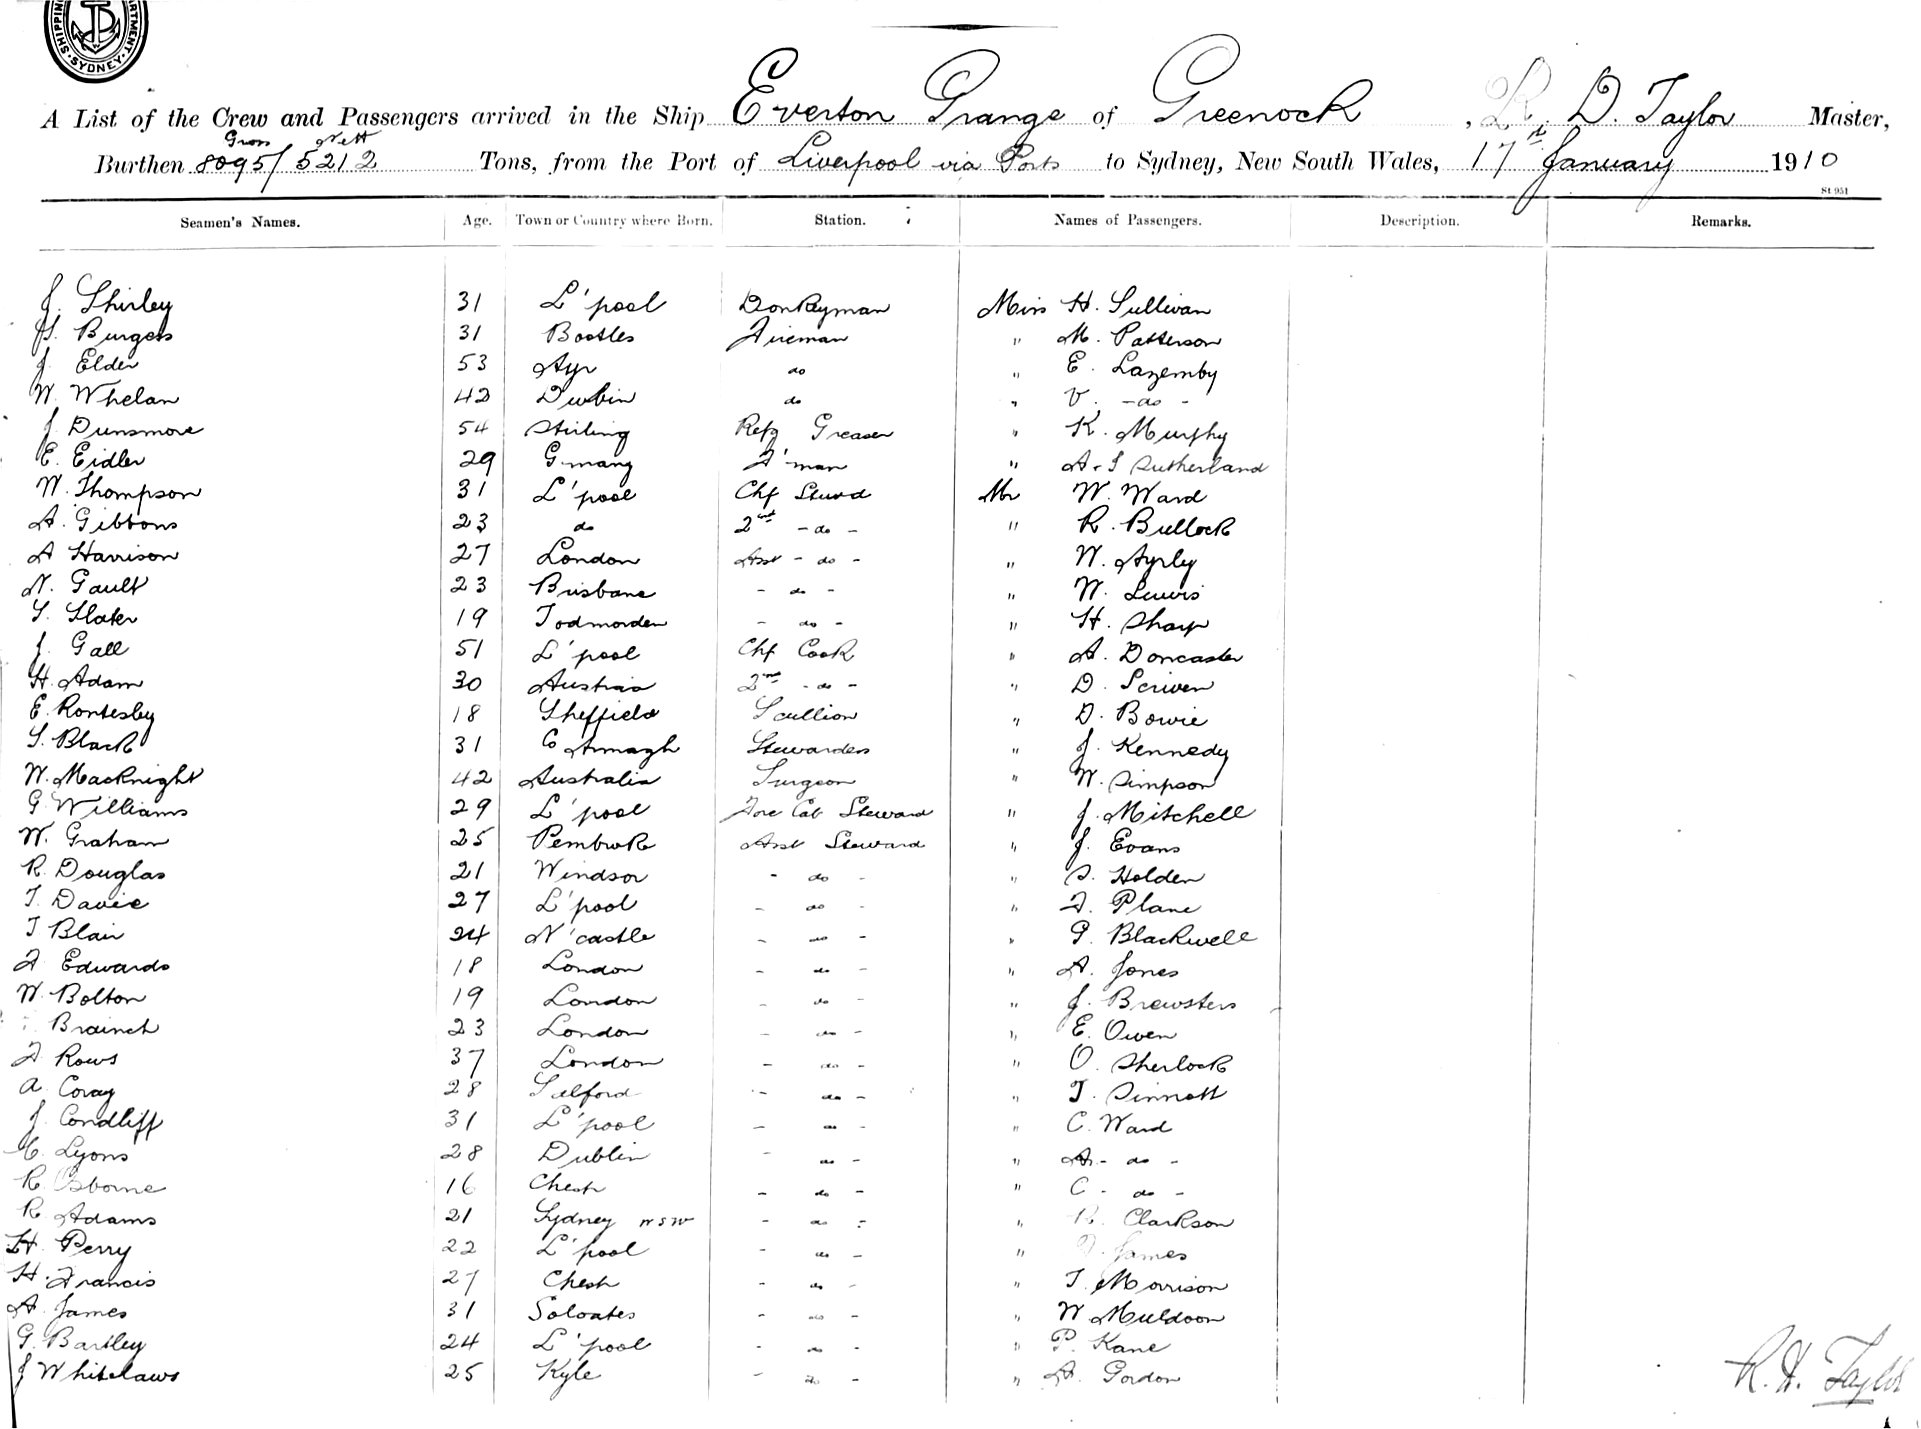 SHIPPING DEPARTMENT SYDNEY
A List of the Crew and Passengers arrived in the Ship Everton Grange of Greenock, R. D. Taylor Master,
Gross Nett
Burthen 8095/5212 Tons, from the Port of Liverpool via Ports to Sydney, New South Wales, 17th January 1910
St 951
Seamen's Names. Age. Town or Country where Born. Station. Names of Passengers. Description. Remarks.
J. Shirley 31 L'pool Donkeyman Miss H. Sullivan
H. Burgess 31 Bootles Fireman " M. Patterson
J. Elder 53 Ayr do " E. Lazemby
W. Whelan 42 Dublin do " V. - do -
J. Dunsmore 54 Stirling Refg Greaser " K. Murphy
E. Eidler 29 G'many F'man " A. S Sutherland
W. Thompson 31 L'pool Chf Stwd Mr W. Ward
A. Gibbons 23 do 2nd - do - " R. Bullock
A Harrison 27 London Asst - do - " W. Ayrley
N. Gault 23 Brisbane - do - " W. Lewis
S. Slater 19 Todmorden - do - " H. Sharp
J. Gall 51 L'pool Chf Cook " A. Doncaster
H. Adam 30 Austria 2nd - do - " D. Scriven
E. Rontesby 18 Sheffield Scullion " D. Bowie
S. Black 31 Co Armagh Stewardess " J. Kennedy
W. MacKnight 42 Australia Surgeon " W. Simpson
G Williams 29 L'pool Fore Cab Steward " J. Mitchell
W. Graham 25 Pembroke Asst Steward " J. Evans
R. Douglas 21 Windsor - do - " S. Holden
T. Davie 27 L'pool - do - " F. Plane
T Blair 24 N'castle - do - " G. Blackwell
F Edwards 18 London - do - " A. Jones
W. Bolton 19 London - do - " J. Brewsters
Brainch 23 London - do - " E. Owen
F Rows 37 London - do - " O. Sherlock
A. Coray 28 Salford - do - " T. Sinnott
J. Condliff 31 L'pool - do - " C. Ward
C. Lyons 28 Dublin - do - " A - do -
R. Osborne 16 Chesh - do - " C - do -
R Adams 21 Sydney NSW - do - " R. Clarkson
H. Perry 22 L'pool - do - " James
H. Francis 27 Chesh - do - " T. Morrison
A. James 31 Soloates - do - " W Muldoon
G. Bartley 24 L'pool - do - " P. Kane
J Whitelaws 25 Kyle - do - " A. Gordon
R. H. Taylor